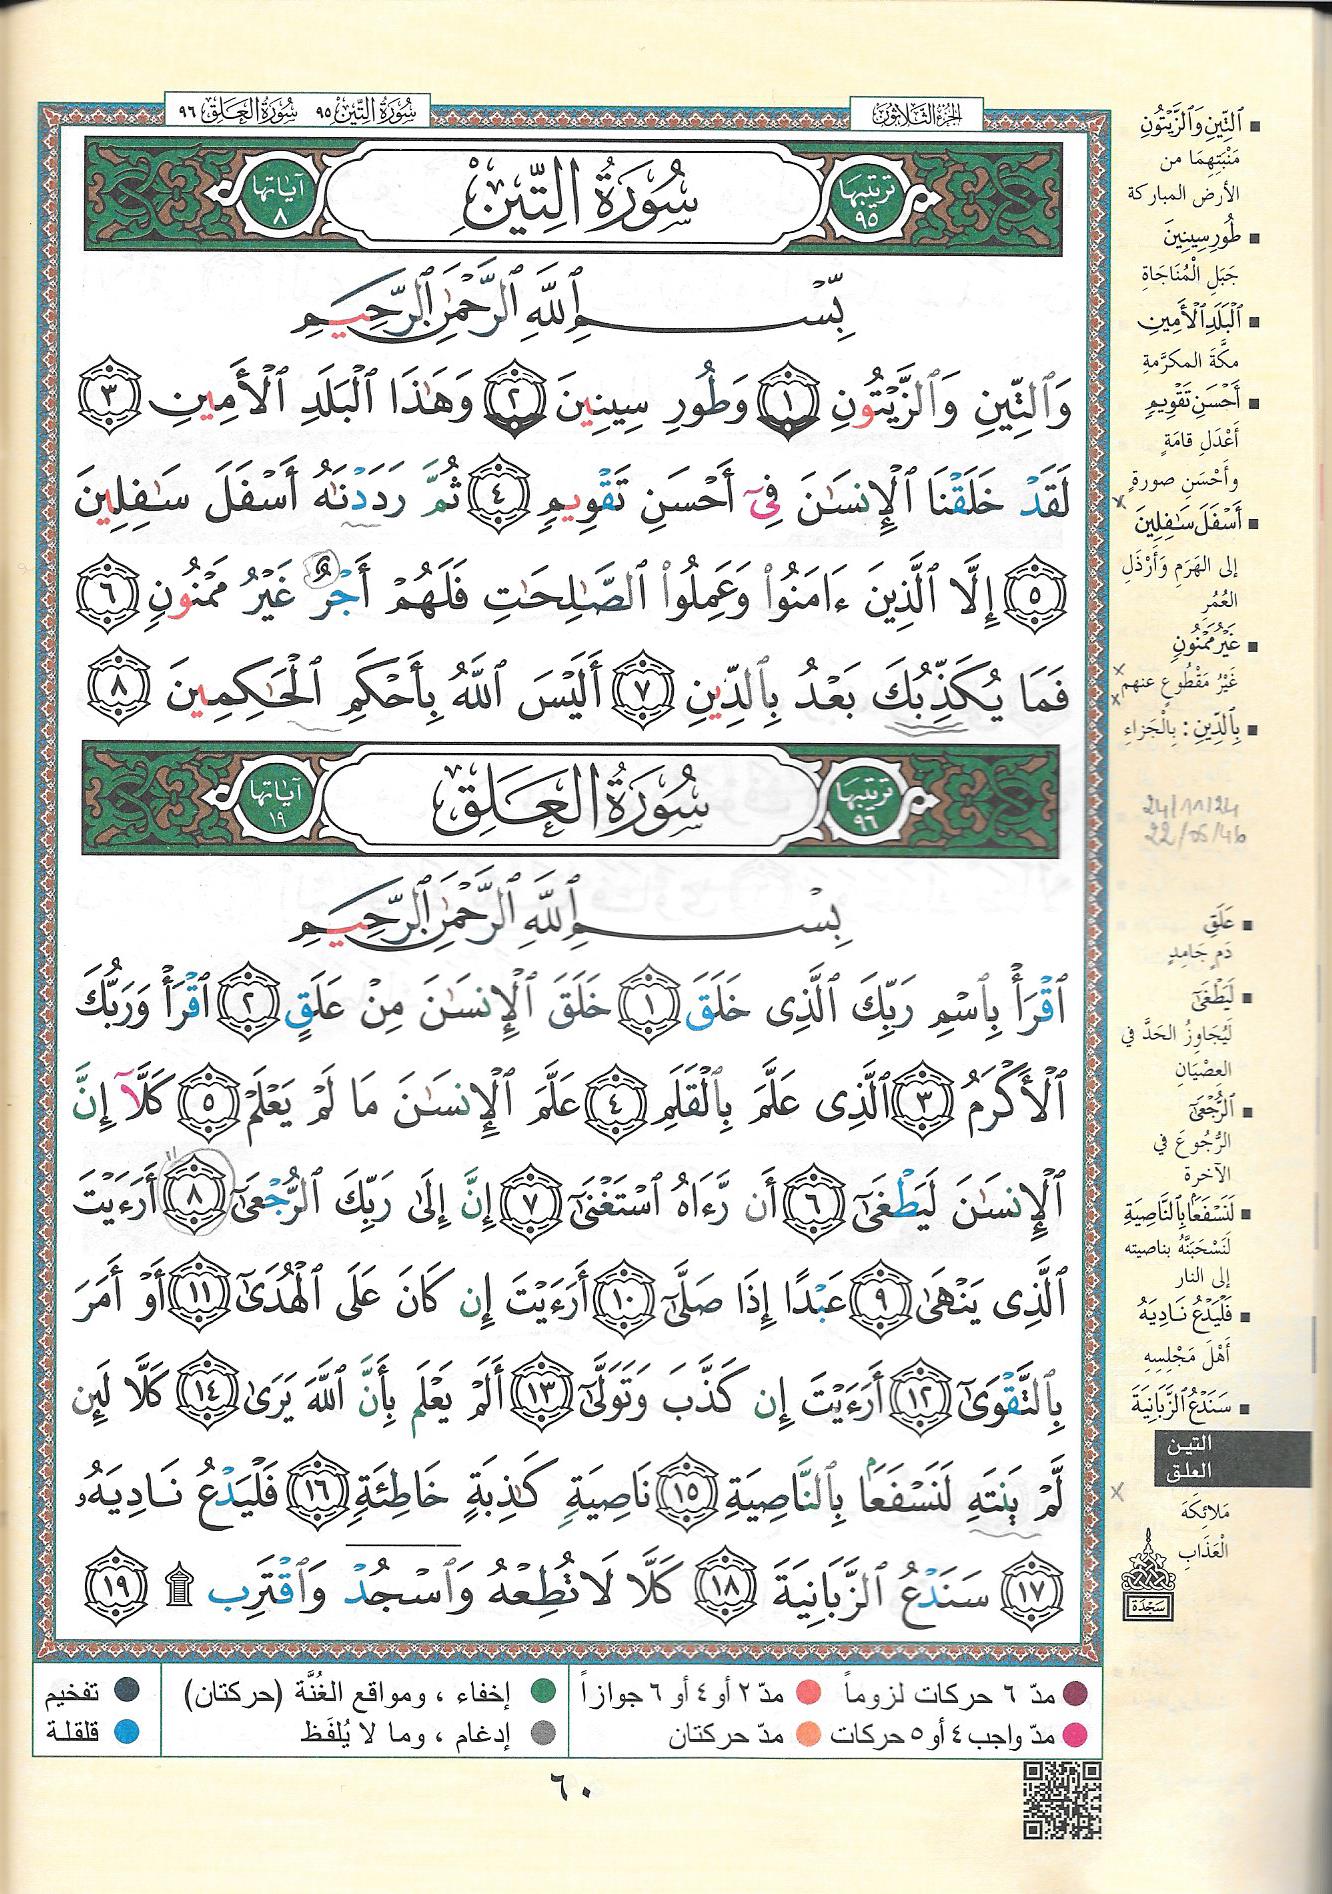 الجزء الثلاثون
سورة التين ٩٥ سورة العلق ٩٦
ترتيبها ٩٥
سُورَةُ التِّينِ
آياتها ٨
بِسْمِ ٱللَّهِ ٱلرَّحْمَٰنِ ٱلرَّحِيمِ
وَٱلتِّينِ وَٱلزَّيْتُونِ ١ وَطُورِ سِينِينَ ٢ وَهَٰذَا ٱلْبَلَدِ ٱلْأَمِينِ ٣
لَقَدْ خَلَقْنَا ٱلْإِنسَٰنَ فِىٓ أَحْسَنِ تَقْوِيمٍ ٤ ثُمَّ رَدَدْنَٰهُ أَسْفَلَ سَٰفِلِينَ
٥ إِلَّا ٱلَّذِينَ ءَامَنُوا۟ وَعَمِلُوا۟ ٱلصَّٰلِحَٰتِ فَلَهُمْ أَجْرٌ غَيْرُ مَمْنُونٍ ٦
فَمَا يُكَذِّبُكَ بَعْدُ بِٱلدِّينِ ٧ أَلَيْسَ ٱللَّهُ بِأَحْكَمِ ٱلْحَٰكِمِينَ ٨
ترتيبها ٩٦
سُورَةُ العَلَقِ
آياتها ١٩
بِسْمِ ٱللَّهِ ٱلرَّحْمَٰنِ ٱلرَّحِيمِ
ٱقْرَأْ بِٱسْمِ رَبِّكَ ٱلَّذِى خَلَقَ ١ خَلَقَ ٱلْإِنسَٰنَ مِنْ عَلَقٍ ٢ ٱقْرَأْ وَرَبُّكَ
ٱلْأَكْرَمُ ٣ ٱلَّذِى عَلَّمَ بِٱلْقَلَمِ ٤ عَلَّمَ ٱلْإِنسَٰنَ مَا لَمْ يَعْلَمْ ٥ كَلَّآ إِنَّ
ٱلْإِنسَٰنَ لَيَطْغَىٰٓ ٦ أَن رَّءَاهُ ٱسْتَغْنَىٰٓ ٧ إِنَّ إِلَىٰ رَبِّكَ ٱلرُّجْعَىٰٓ ٨ أَرَءَيْتَ
ٱلَّذِى يَنْهَىٰ ٩ عَبْدًا إِذَا صَلَّىٰٓ ١٠ أَرَءَيْتَ إِن كَانَ عَلَى ٱلْهُدَىٰٓ ١١ أَوْ أَمَرَ
بِٱلتَّقْوَىٰٓ ١٢ أَرَءَيْتَ إِن كَذَّبَ وَتَوَلَّىٰٓ ١٣ أَلَمْ يَعْلَم بِأَنَّ ٱللَّهَ يَرَىٰ ١٤ كَلَّا لَئِن
لَّمْ يَنتَهِ لَنَسْفَعًۢا بِٱلنَّاصِيَةِ ١٥ نَاصِيَةٍ كَٰذِبَةٍ خَاطِئَةٍ ١٦ فَلْيَدْعُ نَادِيَهُۥ
١٧ سَنَدْعُ ٱلزَّبَانِيَةَ ١٨ كَلَّا لَا تُطِعْهُ وَٱسْجُدْ وَٱقْتَرِب ۩ ١٩
ٱلتِّينِ وَٱلزَّيْتُونِ
مَنْبَتِهِمَا من
الأرض المباركة
طُورِ سِينِينَ
جَبَلِ الْمُنَاجَاةِ
ٱلْبَلَدِ ٱلْأَمِينِ
مكَّةَ المكرَّمةِ
أَحْسَنِ تَقْوِيمٍ
أَعْدَلِ قامَةٍ
وأَحْسَنِ صورةٍ
أَسْفَلَ سَٰفِلِينَ
إلى الهَرَمِ وَأَرْذَلِ
العُمُرِ
غَيْرُ مَمْنُونٍ
غَيْرُ مَقْطُوعٍ عنهم
بِٱلدِّينِ : بِالْجَزاءِ
24/11/24
22/05/46
عَلَقٍ
دَمٍ جَامِدٍ
لَيَطْغَىٰٓ
لَيُجَاوِزُ الحَدَّ في
العِصْيَانِ
ٱلرُّجْعَىٰٓ
الرُّجُوعَ في
الآخرة
لَنَسْفَعًۢا بِٱلنَّاصِيَةِ
لَنَسْحَبَنَّهُ بناصيته
إلى النار
فَلْيَدْعُ نَادِيَهُ
أَهْلَ مَجْلِسِهِ
سَنَدْعُ ٱلزَّبَانِيَةَ
التين
العلق
مَلائِكَةَ
الْعَذَابِ
سَجْدَة
مدّ ٦ حركات لزوماً
مدّ ٢ أو ٤ أو ٦ جوازاً
إخفاء ، ومواقع الغُنَّة (حركتان)
تفخيم
مدّ واجب ٤ أو ٥ حركات
مدّ حركتان
إدغام ، وما لا يُلفَظ
قلقلة
٦٠